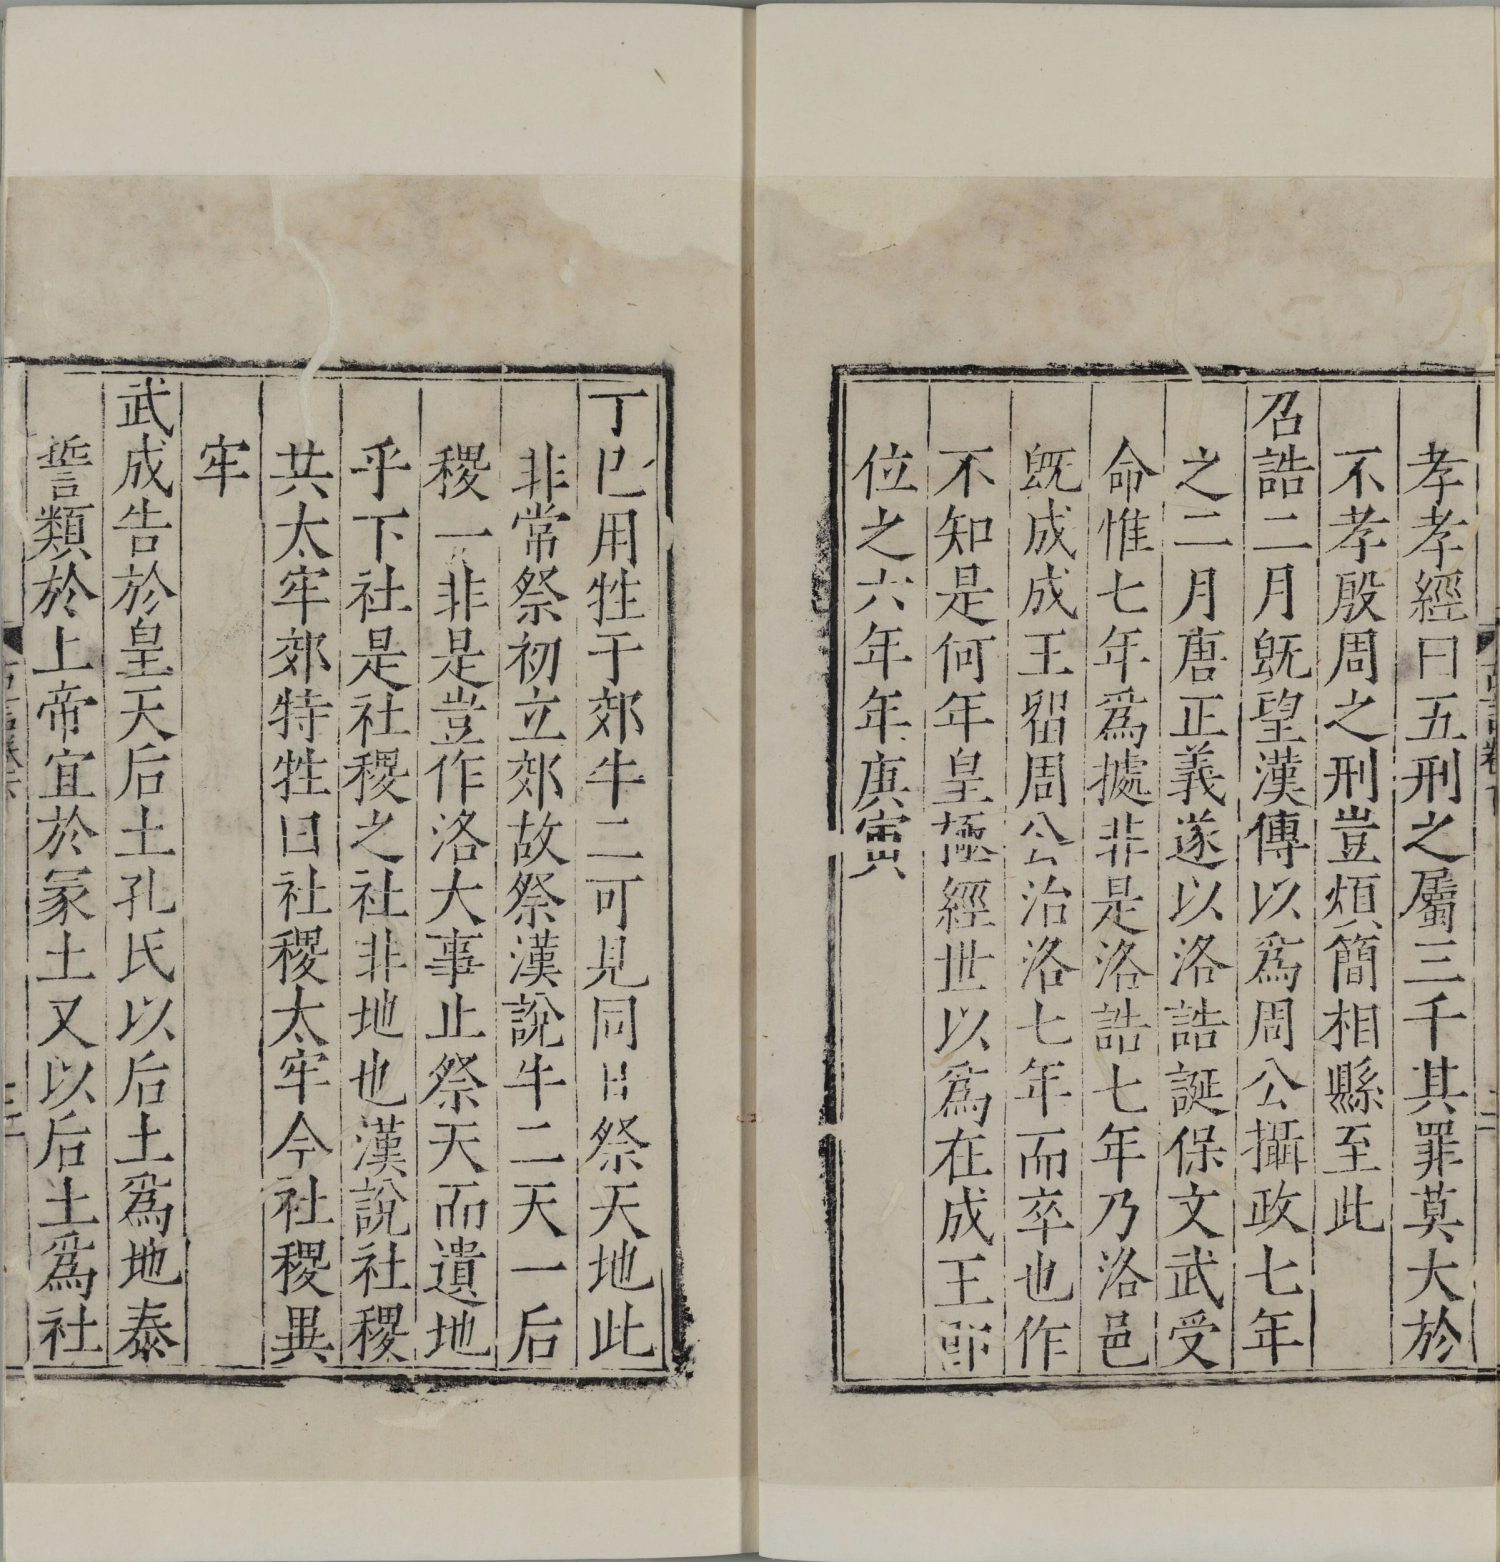 孝孝經曰五刑之屬三千其罪莫大於
不孝殷周之刑豈煩簡相縣至此
召誥二月旣望漢傳以爲周公攝政七年
之二月唐正義遂以洛誥誕保文武受
命惟七年爲㨿非是洛誥七年乃洛邑
旣成成王留周公治洛七年而卒也作
不知是何年皇極經世以爲在成王即
位之六年年庚寅
丁巳用牲于郊牛二可見同日祭天地此
非常祭初立郊故祭漢說牛二天一后
稷一非是豈作洛大事止祭天而遺地
乎下社是社稷之社非地也漢說社稷
共太牢郊特牲曰社稷太牢今社稷異
牢
武成告於皇天后土孔氏以后土爲地泰
誓類於上帝宜於冢土又以后土爲社